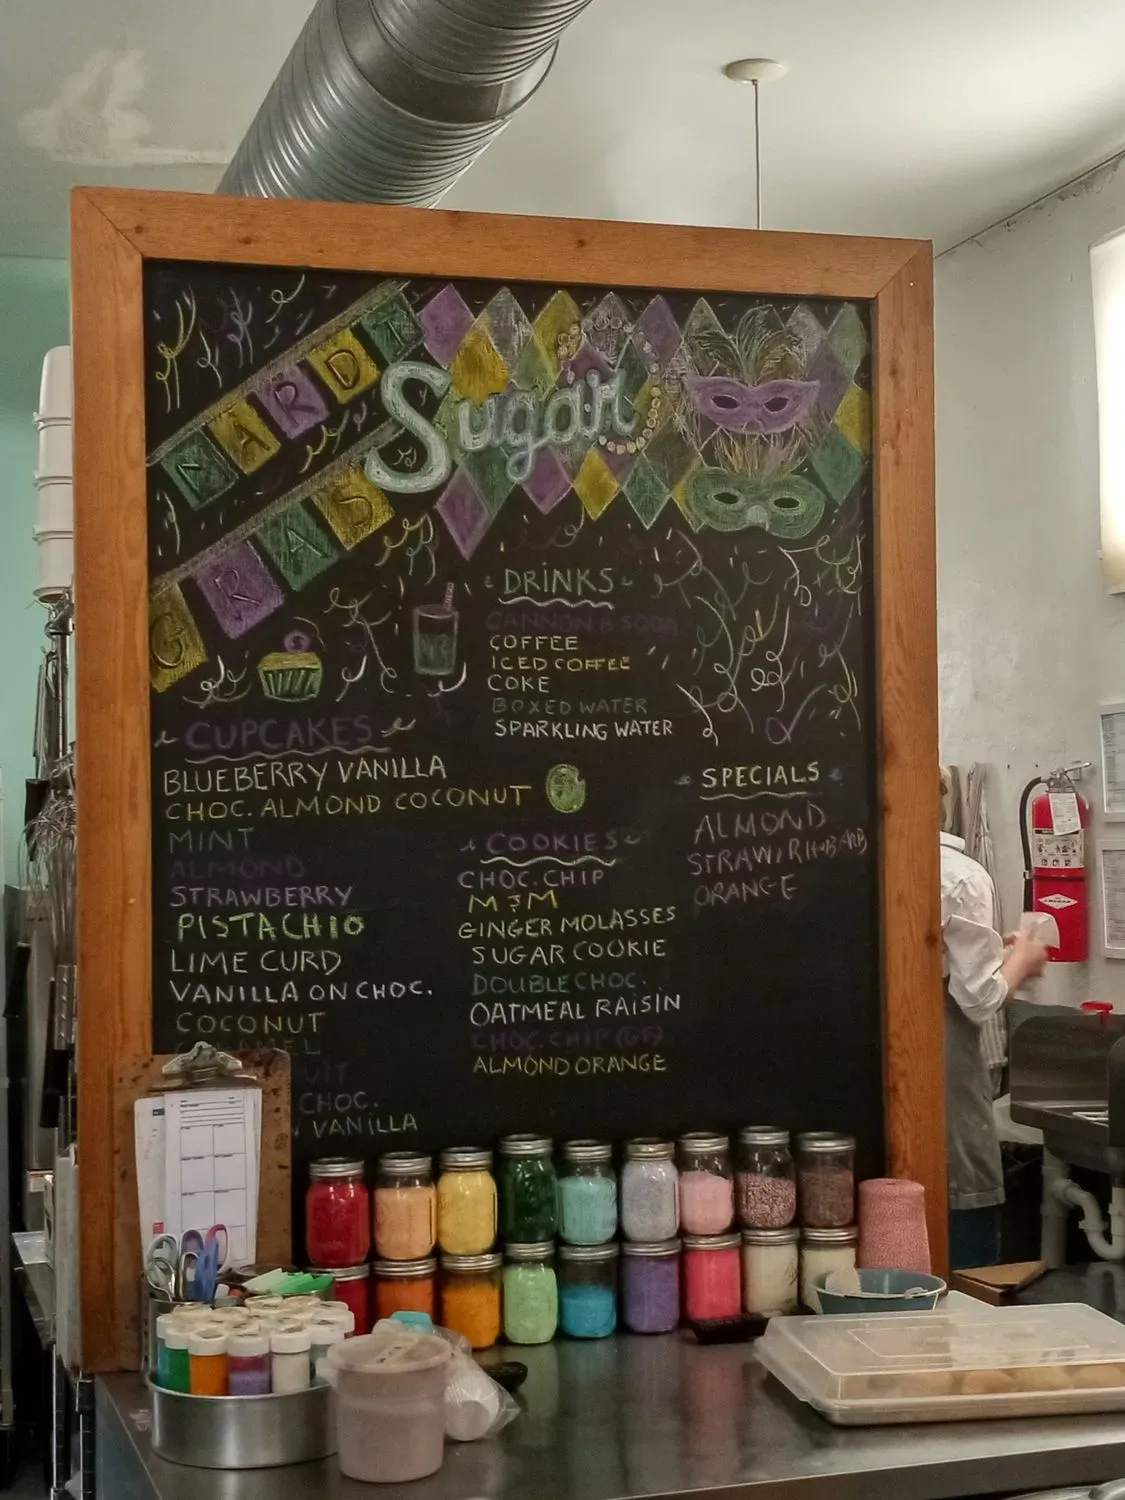 MARDI
GRAS
Sugar
DRINKS
CANNON B SODA
COFFEE
ICED COFFEE
COKE
BOXED WATER
SPARKLING WATER
CUPCAKES
BLUEBERRY VANILLA
CHOC. ALMOND COCONUT
MINT
ALMOND
STRAWBERRY
PISTACHIO
LIME CURD
VANILLA ON CHOC.
COCONUT
CARAMEL
CHOC.
VANILLA
COOKIES
CHOC. CHIP
M&M
GINGER MOLASSES
SUGAR COOKIE
DOUBLE CHOC.
OATMEAL RAISIN
CHOC. CHIP (GF)
ALMOND ORANGE
SPECIALS
ALMOND
STRAW/RHUBARB
ORANGE